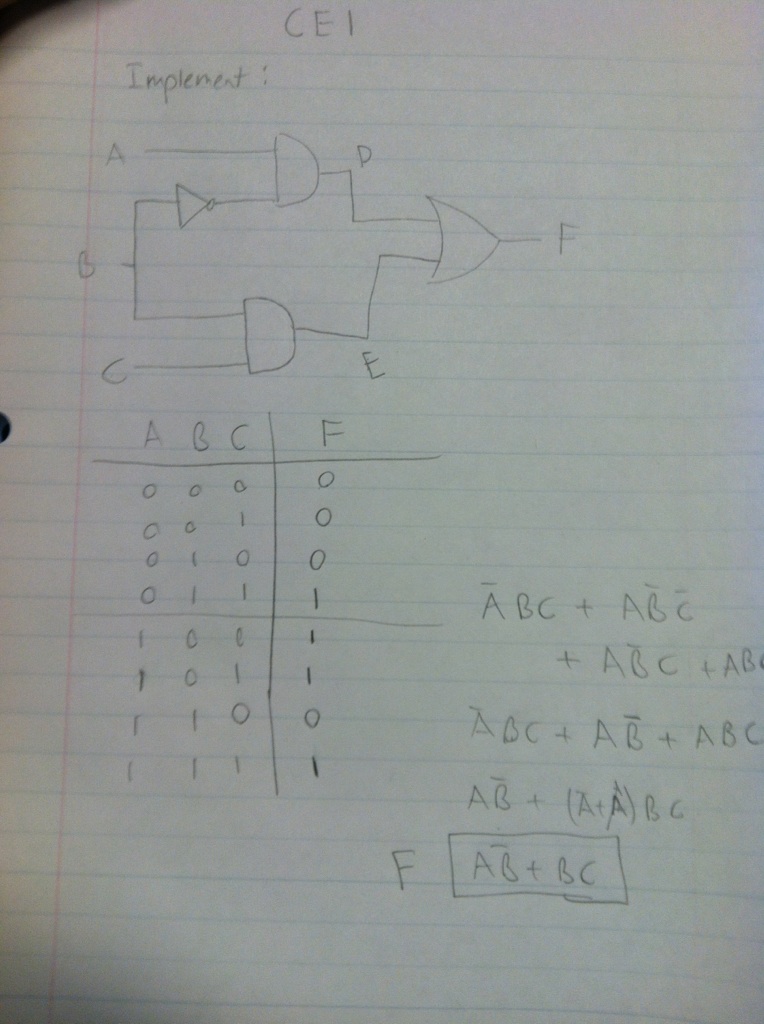 CE1
Implement:
A
D
F
B
C
E
A B C F
0 0 0 0
0 0 1 0
0 1 0 0
0 1 1 1
1 0 0 1
1 0 1 1
1 1 0 0
1 1 1 1
A̅BC + AB̅C̅
+ AB̅C + ABC
A̅BC + AB̅ + ABC
AB̅ + (A̅+A)BC
F AB̅ + BC